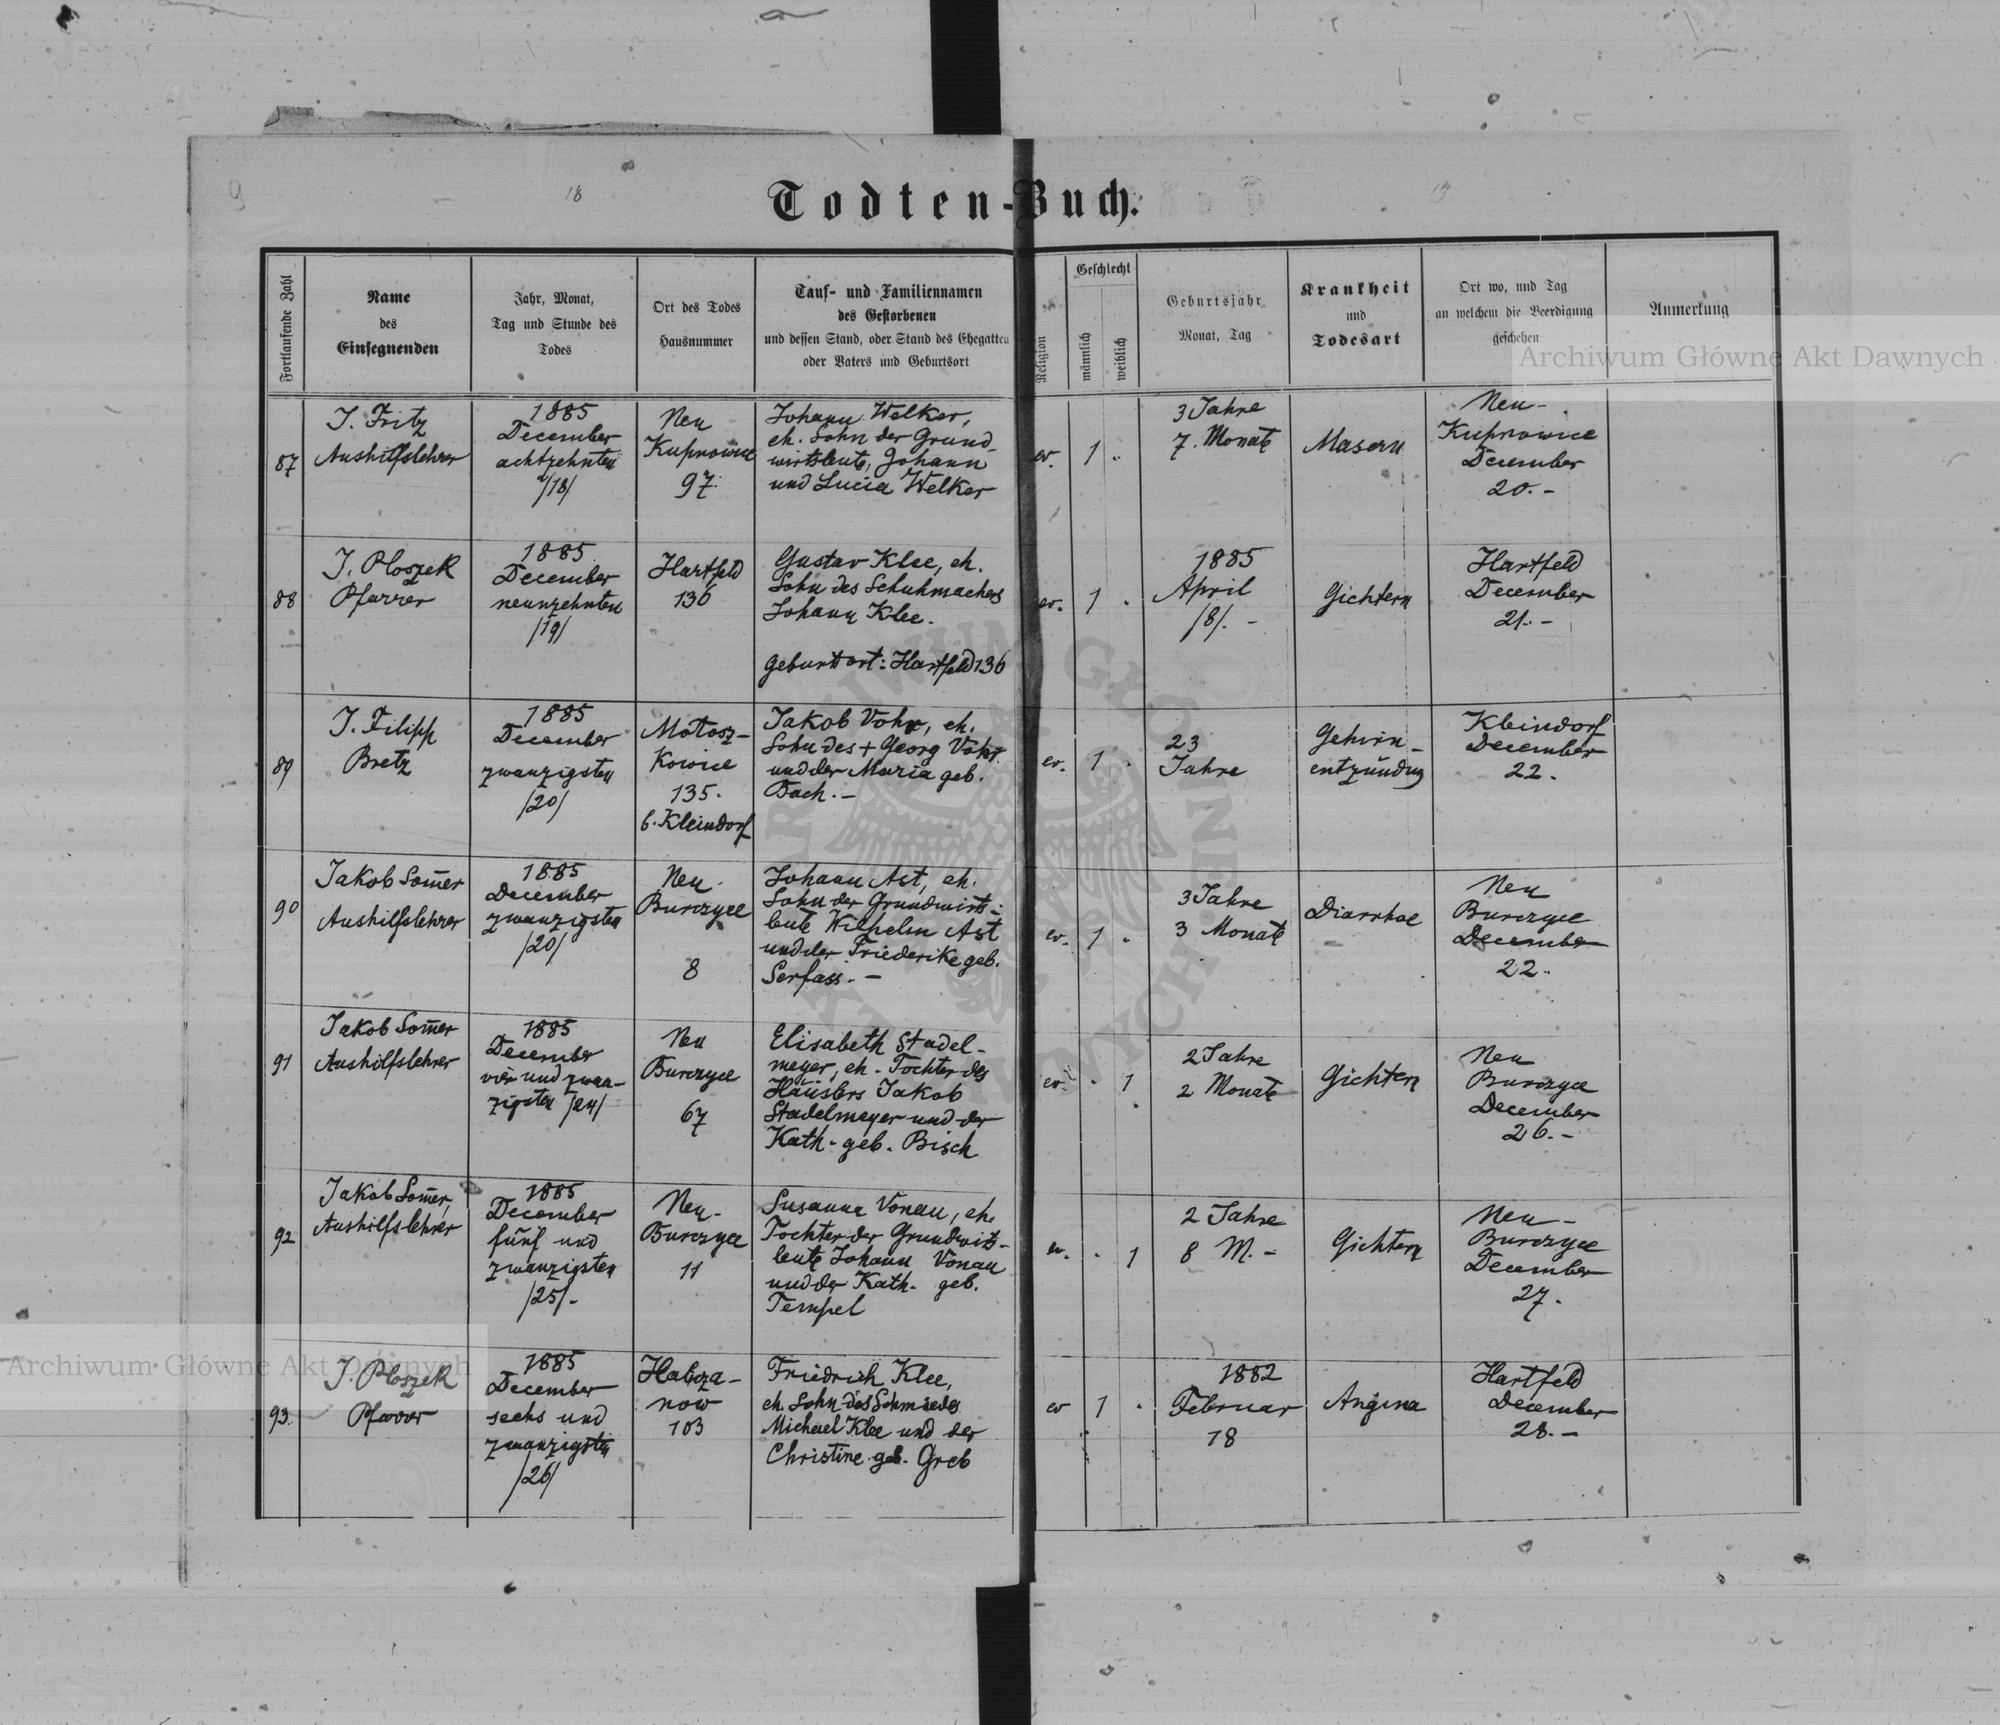 9
18
13
Todten-Buch.
Fortlaufende Zahl
Name
des
Einsegnenden
Jahr, Monat,
Tag und Stunde des
Todes
Ort des Todes
Hausnummer
Tauf- und Familiennamen
des Gestorbenen
und dessen Stand, oder Stand des Ehegatten
oder Vaters und Geburtsort
Religion
Geschlecht
männlich
weiblich
Geburtsjahr
Monat, Tag
Krankheit
und
Todesart
Ort wo, und Tag
an welchem die Beerdigung
geschehen
Anmerkung
Archiwum Główne Akt Dawnych
87
J. Fritz
Aushilfslehrer
1885
December
achtzehnten
/18/
Neu
Kupnowice
97.
Johann Welker,
eh. Sohn der Grund-
wirtsleute, Johann
und Lucia Welker
ev.
1
.
3 Jahre
7. Monate
Masern
Neu-
Kupnowice
December
20.-
88
J. Ploszek
Pfarrer
1885
December
neunzehnten
/19/
Hartfeld
136
Gustav Klee, eh.
Sohn des Schuhmachers
Johann Klee.
Geburtsort: Hartfeld 136
ev.
1
.
1885
April
/8/. -
Gichtern
Hartfeld
December
21.-
89
J. Filipp
Bretz
1885
December
zwanzigsten
/20/
Motosz-
Kowice
135.
b. Kleindorf
Jakob Vohr, eh.
Sohn des + Georg Vohr
und der Maria geb.
Bach. -
ev.
1
.
23
Jahre
Gehirn-
entzündung
Kleindorf
December
22.
90
Jakob Som̄er
Aushilfslehrer
1885
December
zwanzigsten
/20/
Neu
Burczyce
8
Johann Ast, eh.
Sohn der Grundwirts-
leute Wilhelm Ast
und der Friederike geb.
Serfass. -
ev.
1
.
3 Jahre
3 Monate
Diarrhoe
Neu
Burczyce
December
22.
91
Jakob Som̄er
Aushilfslehrer
1885
December
vier und zwan-
zigsten /24/
Neu
Burczyce
67
Elisabeth Stadel-
meyer, eh. Tochter des
Häuslers Jakob
Stadelmeyer und der
Kath. geb. Bisch
ev.
.
1
2 Jahre
2 Monate
Gichtern
Neu
Burczyce
December
26.-
92
Jakob Som̄er,
Aushilfslehrer
1885
December
fünf und
zwanzigsten
/25/-
Neu-
Burczyce
11
Susanna Vonau, eh.
Tochter der Grundwirts-
leute Johann Vonau
und der Kath. geb.
Tempel
ev.
.
1
2 Jahre
8 M. -
Gichtern
Neu-
Burczyce
December
27.
93.
J. Ploszek
Pfarrer
1885
December
sechs und
zwanzigsten
/26/
103
Friedrich Klee,
eh. Sohn des Schmiedes
Michael Klee und der
Christine geb. Greb
ev
1
.
1882
Februar
18
Angina
Hartfeld
December
28.-
Archiwum Główne Akt Dawnych
ARCHIWUM GŁÓWNE AKT DAWNYCH